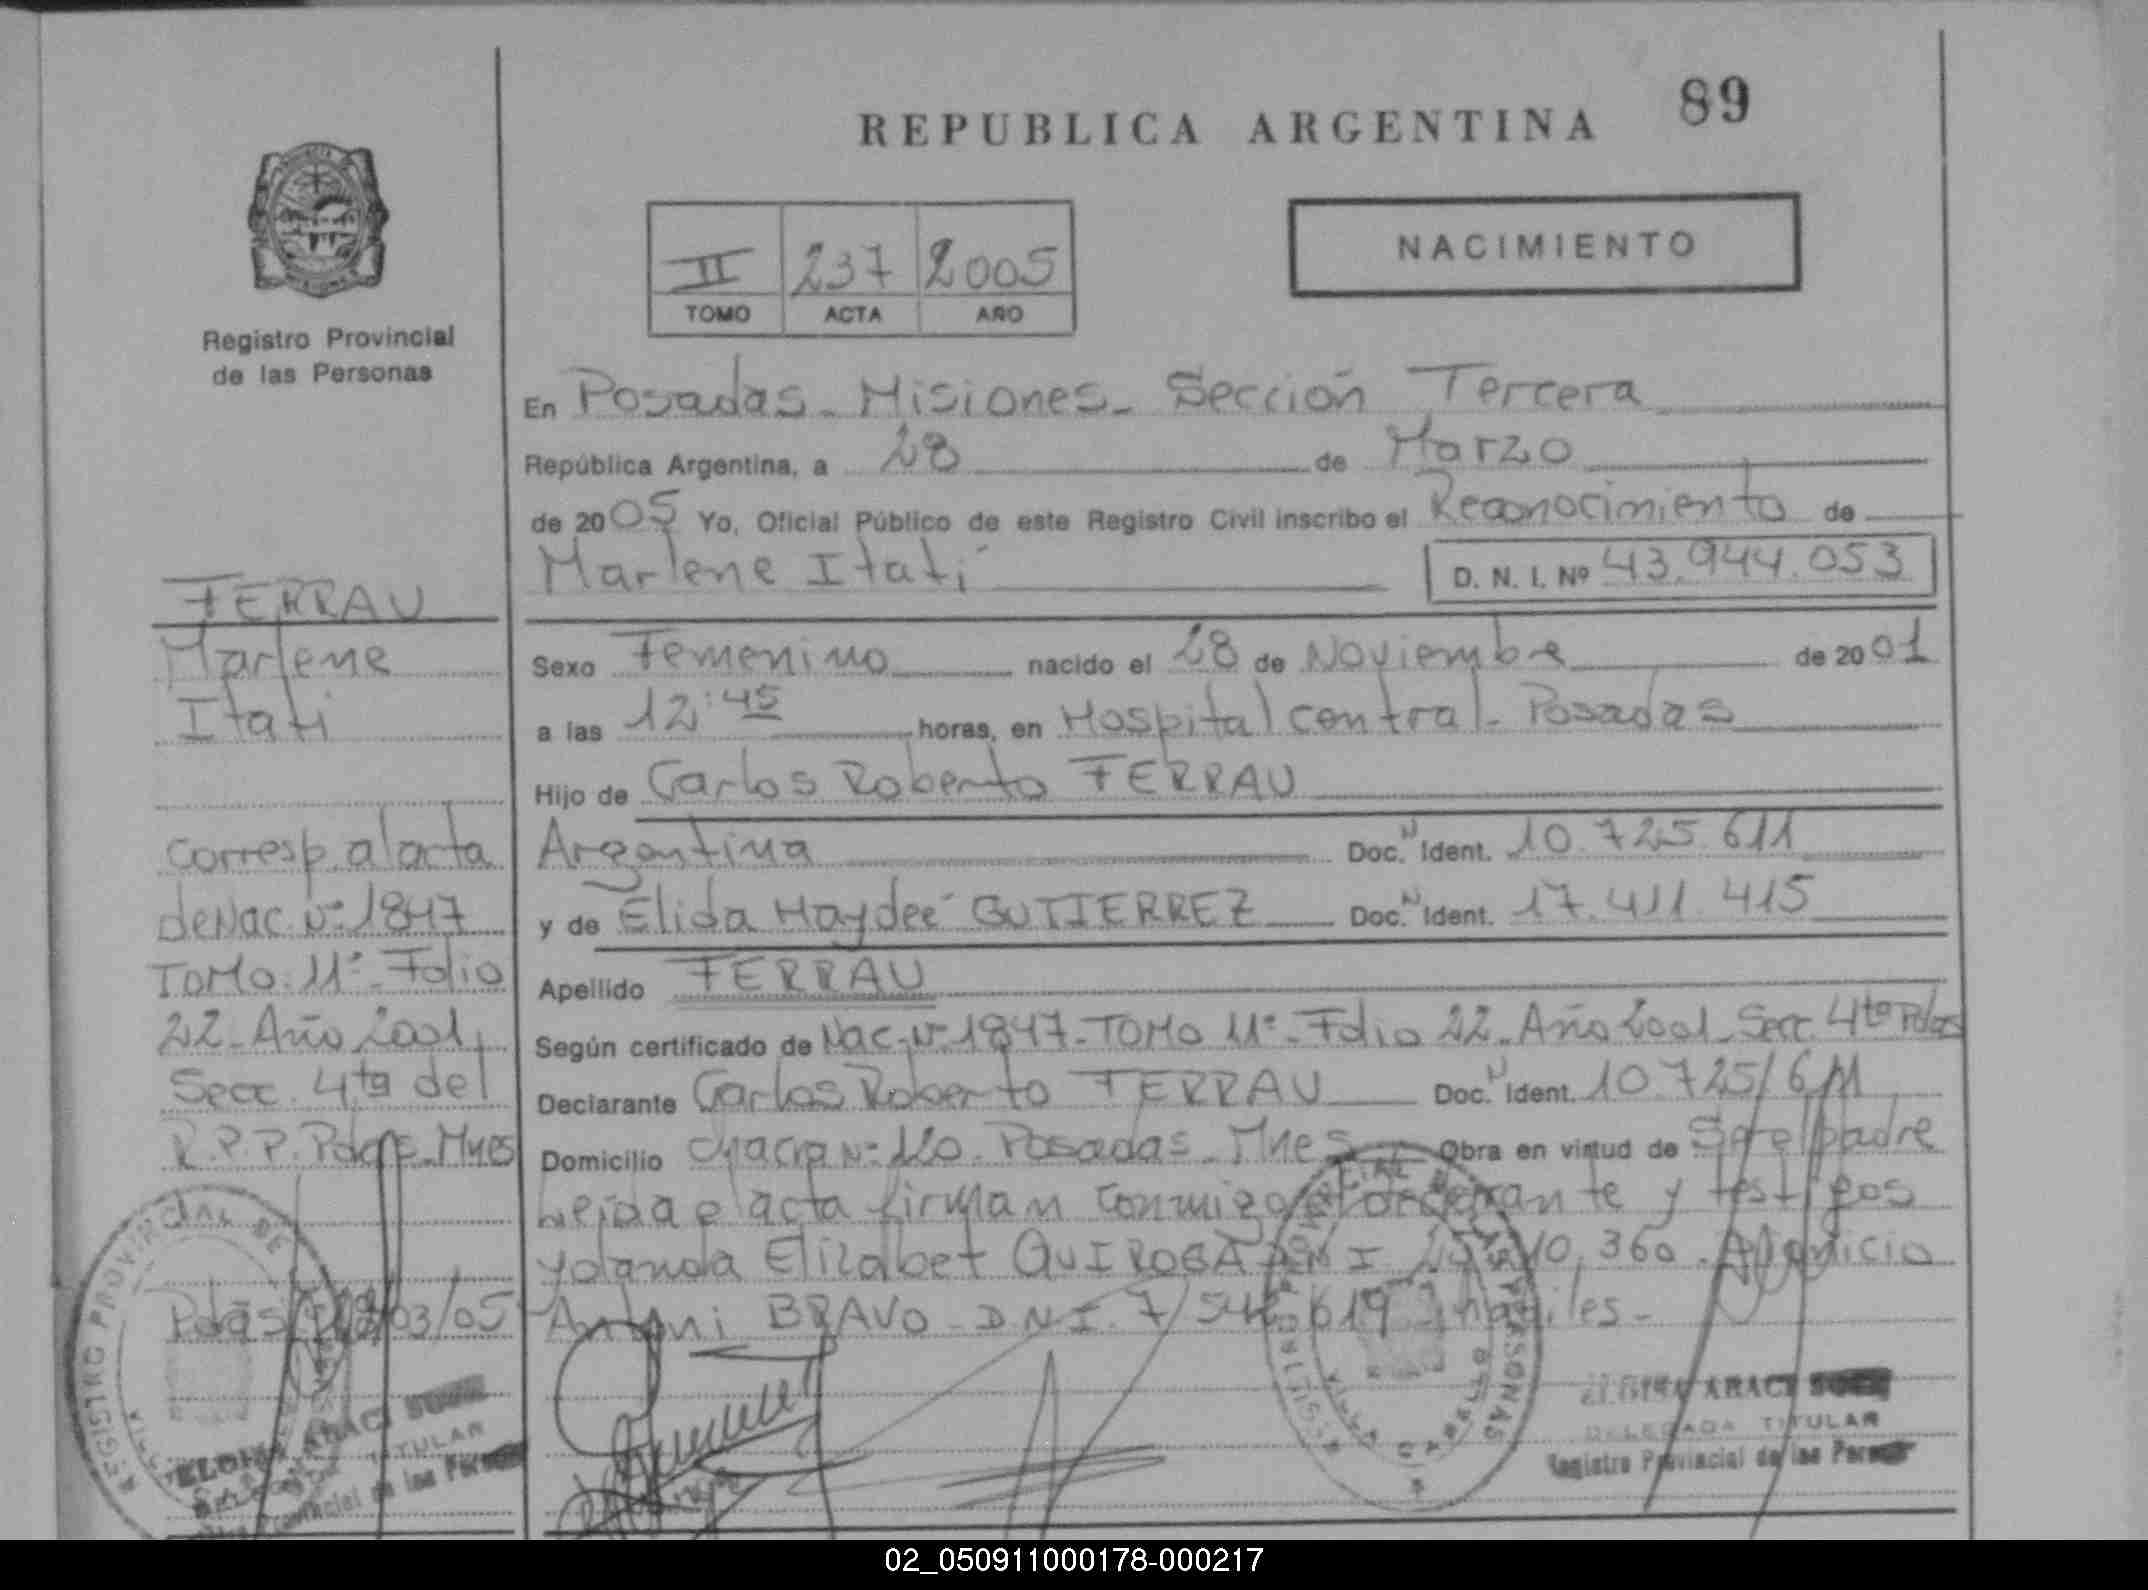 REPUBLICA ARGENTINA
89
II 237 2005
TOMO ACTA AÑO
NACIMIENTO
Registro Provincial
de las Personas
En Posadas - Misiones - Sección Tercera
República Argentina, a 28 de Marzo
de 2005 Yo, Oficial Público de este Registro Civil inscribo el Reconocimiento de
Marlene Itatí
D. N. I. Nº 43.944.053
FERRAU
Marlene
Itati
Corresp. al acta
de Nac. Nº 1847
TOMO 11º - Folio
22 - Año 2001,
Secc. 4ta del
R.P.P. Pdas - Mnes
Sexo Femenino nacido el 28 de Noviembre de 2001
a las 12:45 horas, en Hospital Central - Posadas
Hijo de Carlos Roberto FERRAU
Argentina Doc. N Ident. 10.725.611
y de Elida Haydeé GUTIERREZ Doc. N Ident. 17.411.415
Apellido FERRAU
Según certificado de Nac. Nº 1847 - TOMO 11º - Folio 22 - Año 2001 - Secc. 4ta Pdas
Declarante Carlos Roberto FERRAU Doc. N Ident. 10.725/611
Domicilio Chacra Nº 120. Posadas - Mnes Obra en virtud de Ser el padre
Leída el acta firman conmigo el declarante y testigos
Yolanda Elizabet QUIROGA DNI 10.360.
Antoni BRAVO - D.N.I. 7/ 619 - hábiles -
Pdas 03/05
REGISTRO PROVINCIAL DE
ARACI
TITULAR
Provincial de las
PERSONAS
ARACI
DELEGADA TITULAR
Registro Provincial de las
02_050911000178-000217